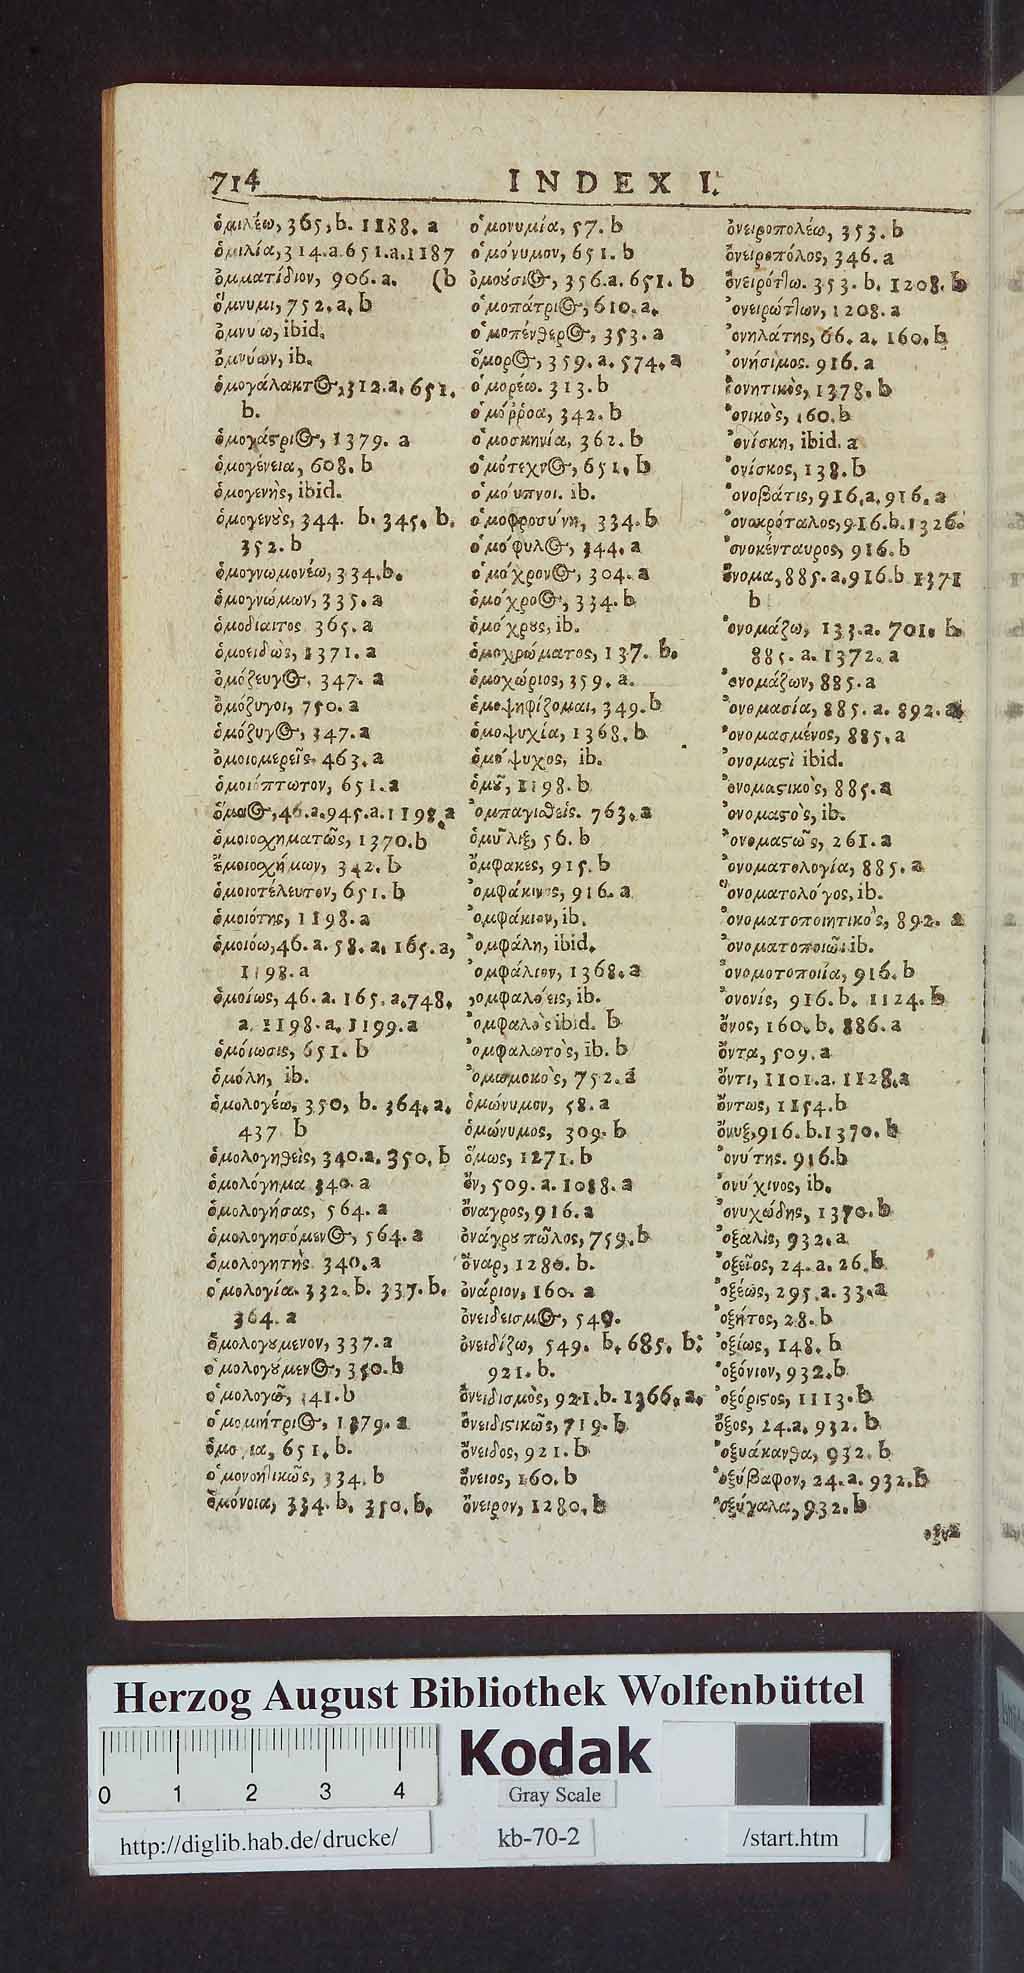 714 INDEX I.
ὁμιλέω, 365, b. 1188. a
ὁμιλία, 314. a. 651. a. 1187
ὀμματίδιον, 906. a. (b
ὄμνυμι, 752. a, b
ὀμνύω, ibid.
ὀμνύων, ib.
ὁμογάλακτ⊙, 312. a. 651.
b.
ὁμογάςρι⊙, 1379. a
ὁμογένεια, 608. b
ὁμογενὴς, ibid.
ὁμογενοὺς, 344. b. 345. b.
352. b
ὁμογνωμονέω, 334. b.
ὁμογνώμων, 335. a
ὁμοδίαιτος 365. a
ὁμοειδὼς, 1371. a
ὁμόζευγ⊙, 347. a
ὁμόζυγοι, 750. a
ὁμόζυγ⊙, 347. a
ὁμοιομερεῖς, 463. a
ὁμοιόπτωτον, 651. a
ὅμοι⊙, 46. a. 945. a. 1198. a
ὁμοιοσχηματῶς, 1370. b
ὁμοιοσχήμων, 342. b
ὁμοιοτέλευτον, 651. b
ὁμοιότης, 1198. a
ὁμοιόω, 46. a. 58. a. 165. a,
1198. a
ὁμοίως, 46. a. 165. a. 748.
a. 1198. a. 1199. a
ὁμόιωσις, 651. b
ὁμόλη, ib.
ὁμολογέω, 350, b. 364. a.
437 b
ὁμολογηθεὶς, 340. a. 350. b
ὁμολόγημα 340. a
ὁμολογήσας, 564. a
ὁμολογησόμεν⊙, 564. a
ὁμολογητὴς 340. a
ὁμολογία. 332. b. 337. b.
364. a
ὁμολογούμενον, 337. a
ὁμολογούμεν⊙, 350. b
ὁμολογῶ, 141. b
ὁμομήτρι⊙, 1379. a
651. b.
ὁμονοητικῶς, 334. b
ὁμόνοια, 334. b. 350. b.
ὁμονυμία, 57. b
ὁμόνυμον, 651. b
ὁμούσι⊙, 356. a. 651. b
ὁμοπάτρι⊙, 610. a.
ὁμοπένθερ⊙, 353. a
ὅμορ⊙, 359. a. 574. a
ὁμορέω. 313. b
ὁμόῤῥοα, 342. b
ὁμοσκηνία, 362. b
ὁμότεχν⊙, 651. b
ὁμούπνοι. ib.
ὁμοφροσύνη, 334. b
ὁμόφυλ⊙, 344. a
ὁμόχρον⊙, 304. a
ὁμόχρο⊙, 334. b
ὁμόχρους, ib.
ὁμοχρώματος, 137. b.
ὁμοχώριος, 359. a.
ὁμοψηφίζομαι, 349. b
ὁμοψυχία, 1368. b
ὁμόψυχος, ib.
ὁμοῦ, 1198. b
ὀμπαγιθείς. 763. a
ὁμοῦλιξ, 56. b
ὄμφακες, 915. b
ὀμφάκινος, 916. a
ὀμφάκιον, ib.
ὀμφάλη, ibid.
ὀμφάλιον, 1368. a
ὀμφαλόεις, ib.
ὀμφαλὸς ibid. b
ὀμφαλωτὸς, ib. b
ὀμωμοκὸς, 752. a
ὁμώνυμον, 58. a
ὁμώνυμος, 309. b
ὅμως, 1271. b
ὂν, 509. a. 1088. a
ὄναγρος, 916. a
ὀνάγρου πῶλος, 759. b
ὄναρ, 1280. b.
ὀνάριον, 160. a
ὀνειδεισμ⊙, 549.
ὀνειδίζω, 549. b. 685. b:
921. b.
ὀνειδισμὸς, 921. b. 1366. a.
ὀνειδιςικῶς, 719. b
ὄνειδος, 921. b
ὄνειος, 160. b
ὄνειρον, 1280. b
ὀνειροπολέω, 353. b
ὀνειροπόλος, 346. a
ὀνειρότ]ω. 353. b. 1208. b
ὀνειρώτ]ων, 1208. a
ὀνηλάτης, 66. a. 160. b
ὀνήσιμος. 916. a
ὀνητικὸς, 1378. b
ὀνικὸς, 160. b
ὀνίσκη, ibid. a
ὀνίσκος, 138. b
ὀνοβάτις, 916. a. 916. a
ὀνοκρόταλος, 916. b. 1326.
ὀνοκένταυρος, 916. b
ὄνομα, 885. a. 916. b 1371
b
ὀνομάζω, 133. a. 701. b
885. a. 1372. a
ὀνομάζων, 885. a
ὀνομασία, 885. a. 892. a
ὀνομασμένος, 885. a
ὀνομαςὶ ibid.
ὀνομαςικὸς, 885. a
ὀνομαςὸς, ib.
ὀνομαςῶς, 261. a
ὀνοματολογία, 885. a
ὀνοματολόγος, ib.
ὀνοματοποιητικὸς, 892. a
ὀνοματοποιῶ, ib.
ὀνομοτοποιΐα, 916. b
ὀνονίς, 916. b. 1124. b
ὄνος, 160. b. 886. a
ὄντα, 509. a
ὄντι, 1101. a. 1128. a
ὄντως, 1154. b
ὄνυξ, 916. b. 1370. b
ὀνύτης. 916. b
ὀνύχινος, ib.
ὀνυχώδης, 1370. b
ὀξαλὶς, 932. a
ὀξεῖος, 24. a. 26. b
ὀξέως, 295. a. 33. a
ὀξήτος, 28. b
ὀξίως, 148. b
ὀξόνιον, 932. b
ὀξόριςος, 1113. b
ὄξος, 24. a. 932. b
ὀξυάκανθα, 932. b
ὀξύβαφον, 24. a. 932. b
ὀξύγαλα, 932. b
Herzog August Bibliothek Wolfenbüttel
Kodak
0 1 2 3 4
Gray Scale
http://diglib.hab.de/drucke/ kb-70-2 /start.htm